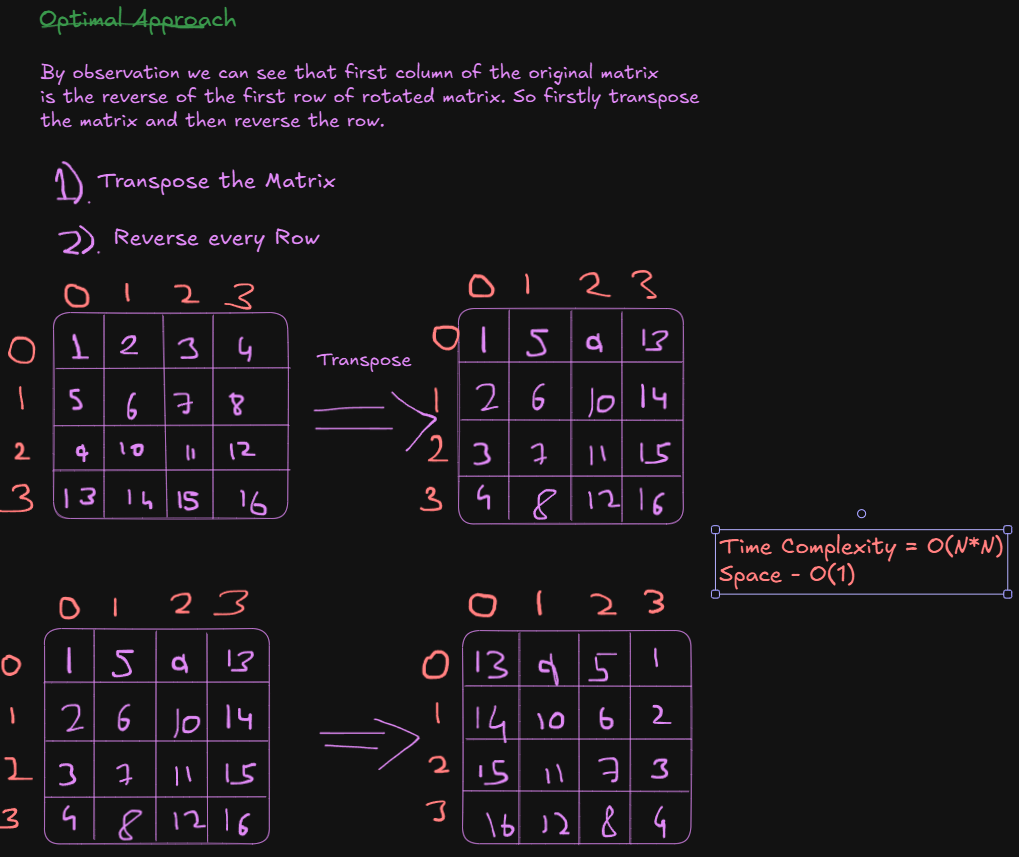 Optimal Approach
By observation we can see that first column of the original matrix
is the reverse of the first row of rotated matrix. So firstly transpose
the matrix and then reverse the row.
1). Transpose the Matrix
2). Reverse every Row
0 1 2 3
0 1 2 3 4
1 5 6 7 8
2 9 10 11 12
3 13 14 15 16
Transpose
0 1 2 3
0 1 5 9 13
1 2 6 10 14
2 3 7 11 15
3 4 8 12 16
Time Complexity = O(N*N)
Space - O(1)
0 1 2 3
0 1 5 9 13
1 2 6 10 14
2 3 7 11 15
3 4 8 12 16
0 1 2 3
0 13 9 5 1
1 14 10 6 2
2 15 11 7 3
3 16 12 8 4